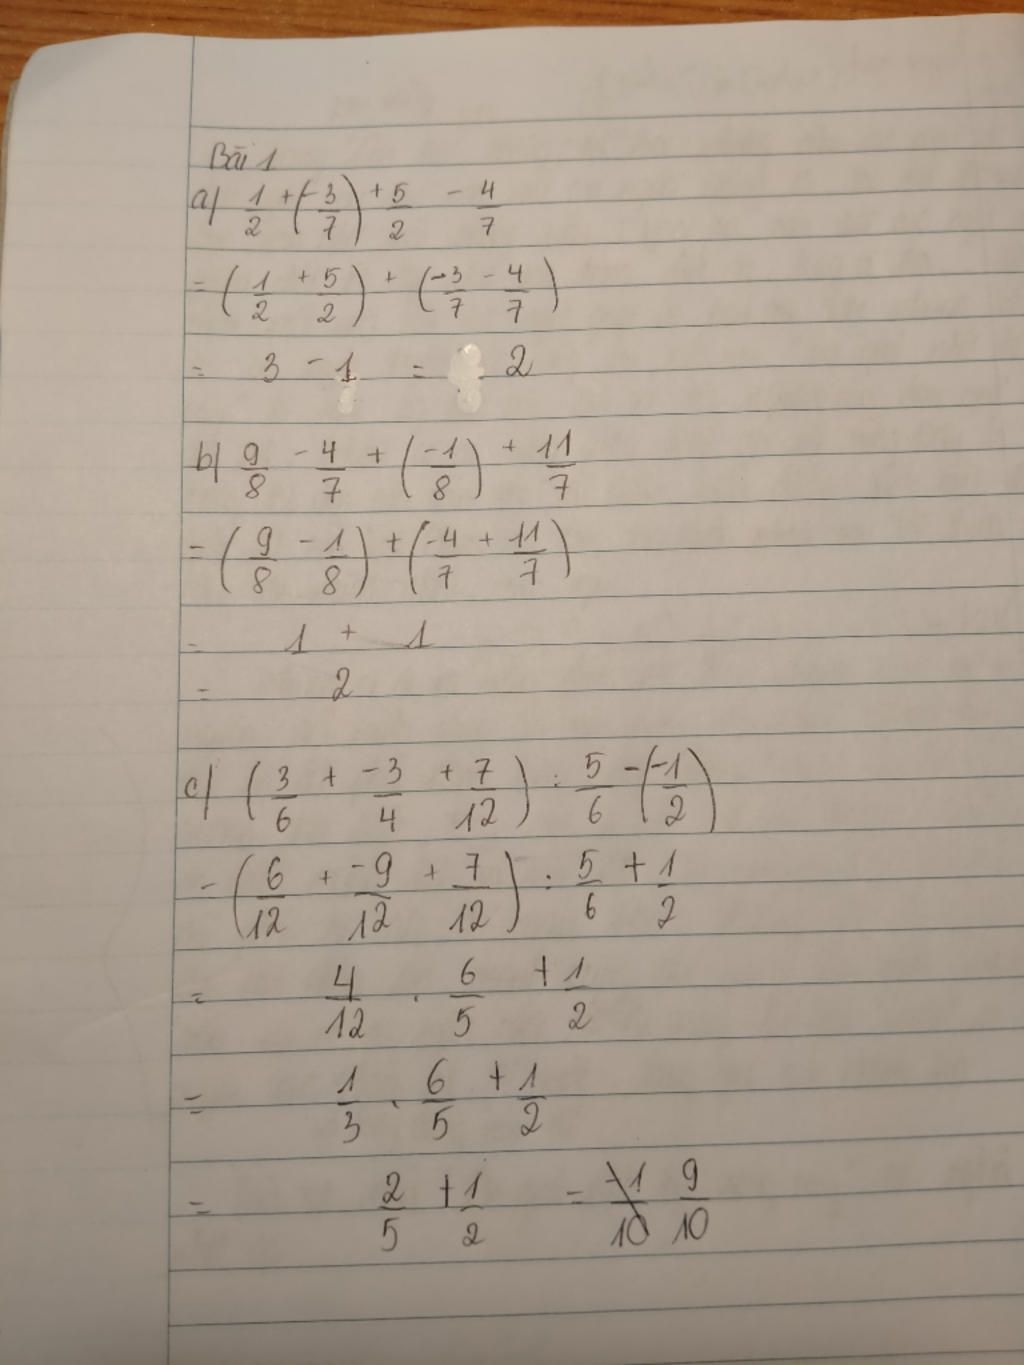 Bài 1
a) 1/2 + (-3/7) + 5/2 - 4/7
= (1/2 + 5/2) + (-3/7 - 4/7)
= 3 - 1 = 2
b) 9/8 - 4/7 + (-1/8) + 11/7
= (9/8 - 1/8) + (-4/7 + 11/7)
= 1 + 1
= 2
c) (3/6 + -3/4 + 7/12) : 5/6 - (-1/2)
= (6/12 + -9/12 + 7/12) : 5/6 + 1/2
= 4/12 . 6/5 + 1/2
= 1/3 . 6/5 + 1/2
= 2/5 + 1/2 = -1/10 9/10